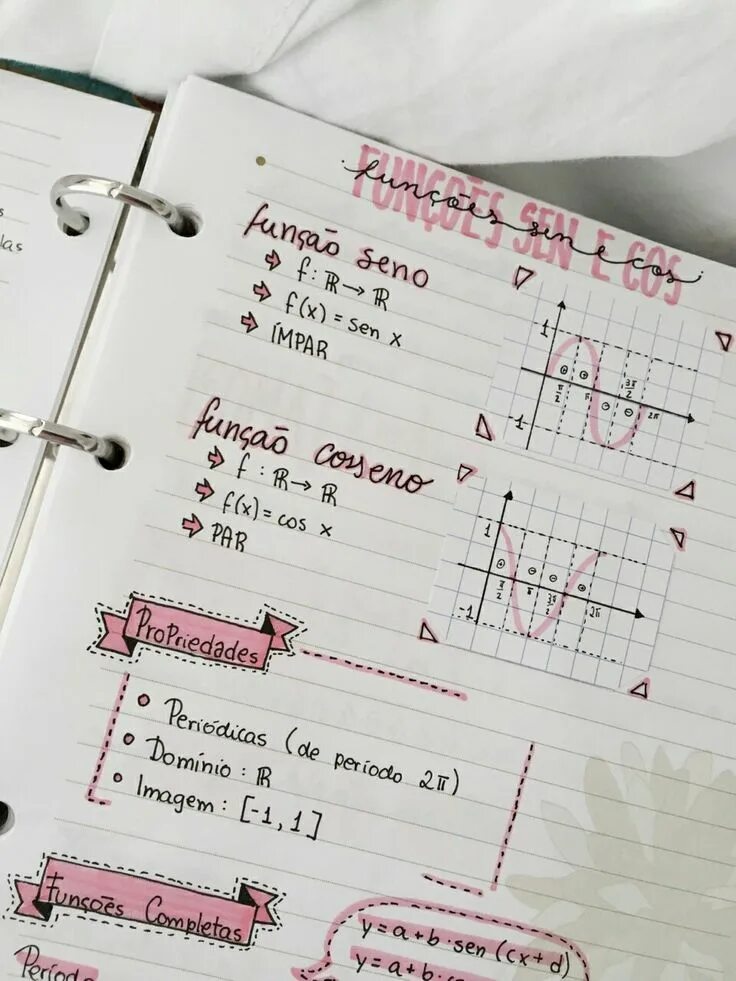 FUNÇÕES SEN E COS
funções sen e cos
função seno
⇒ f: ℝ → ℝ
⇒ f(x) = sen x
⇒ ÍMPAR
1
+ +
π/2 π 3π/2 2π
- -
-1
função cosseno
⇒ f: ℝ → ℝ
⇒ f(x) = cos x
⇒ PAR
1
+ - - +
π/2 π 3π/2 2π
-1
ProPriedades
• Periódicas (de período 2π)
• Domínio: ℝ
• Imagem: [-1, 1]
Funções Completas
y = a + b · sen (cx + d)
y = a + b ·
Período